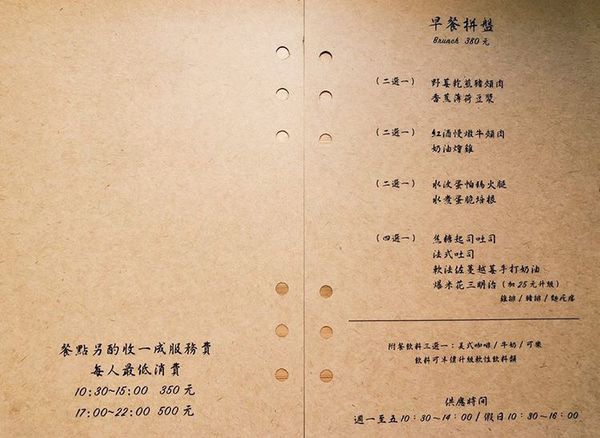 餐點另酌收一成服務費
每人最低消費
10:30~15:00 350 元
17:00~22:00 500 元
早餐拼盤
Brunch 380 元
(二選一) 野莓乾煎豬頰肉
香蕉薄荷豆漿
(二選一) 紅酒慢燉牛頰肉
奶油燴雞
(二選一) 水波蛋帕瑪火腿
水煮蛋脆培根
(四選一) 焦糖起司吐司
法式吐司
軟法佐蔓越莓手打奶油
爆米花三明治 (加 25 元升級)
雞排 / 豬排 /
附餐飲料三選一：美式咖啡 / 牛奶 / 可樂
飲料可半價升級軟性飲料類
供應時間
週一至五 10:30~14:00 / 假日 10:30~16:00